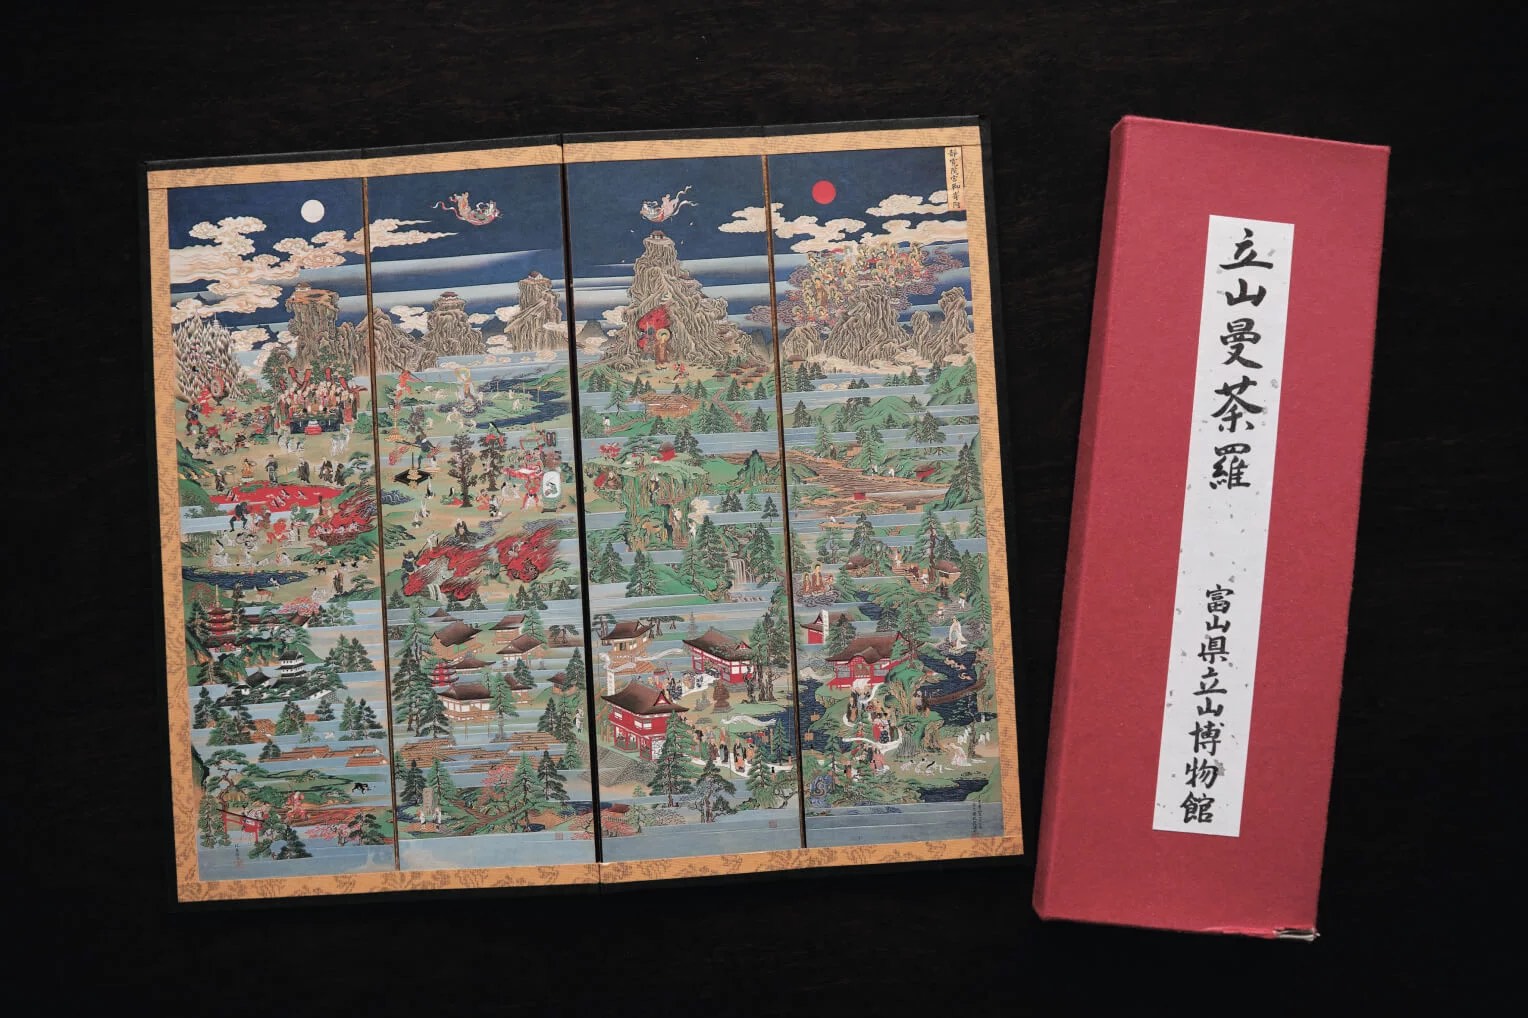 立山曼荼羅
富山県立山博物館